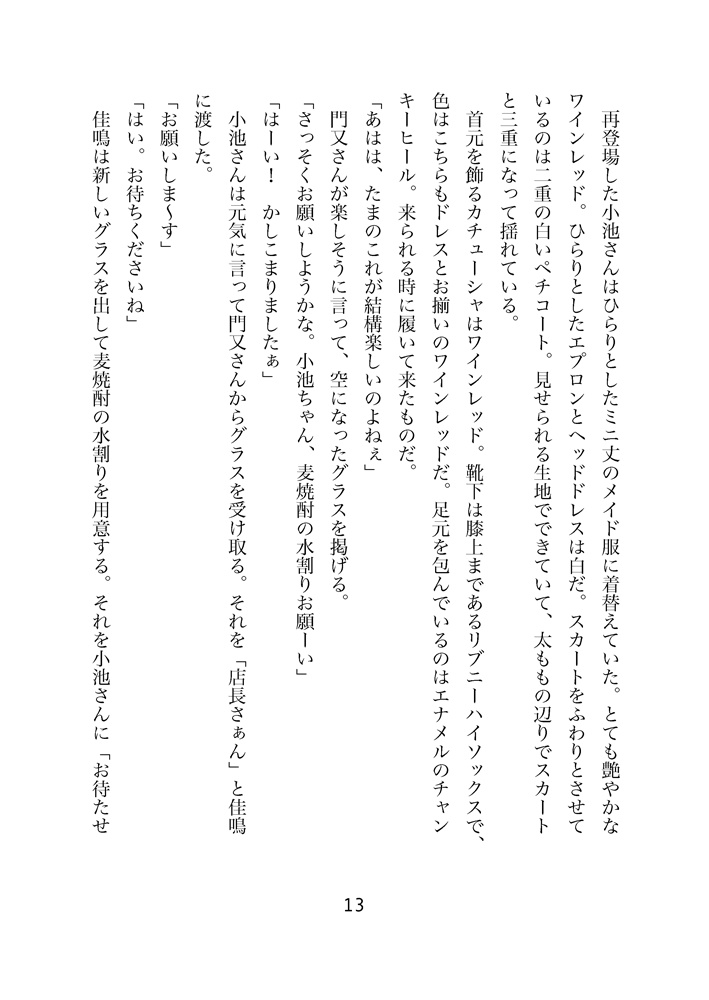 再登場した小池さんはひらりとしたミニ丈のメイド服に着替えていた。とても艶やかな
ワインレッド。ひらりとしたエプロンとヘッドドレスは白だ。スカートをふわりとさせて
いるのは二重の白いペチコート。見せられる生地でできていて、太ももの辺りでスカート
と三重になって揺れている。
　首元を飾るカチューシャはワインレッド。靴下は膝上まであるリブニーハイソックスで、
色はこちらもドレスとお揃いのワインレッドだ。足元を包んでいるのはエナメルのチャン
キーヒール。来られる時に履いて来たものだ。
「あはは、たまのこれが結構楽しいのよねぇ」
　門又さんが楽しそうに言って、空になったグラスを掲げる。
「さっそくお願いしようかな。小池ちゃん、麦焼酎の水割りお願ーい」
「はーい！　かしこまりましたぁ」
　小池さんは元気に言って門又さんからグラスを受け取る。それを「店長さぁん」と佳鳴
に渡した。
「お願いしま〜す」
「はい。お待ちくださいね」
　佳鳴は新しいグラスを出して麦焼酎の水割りを用意する。それを小池さんに「お待たせ
13